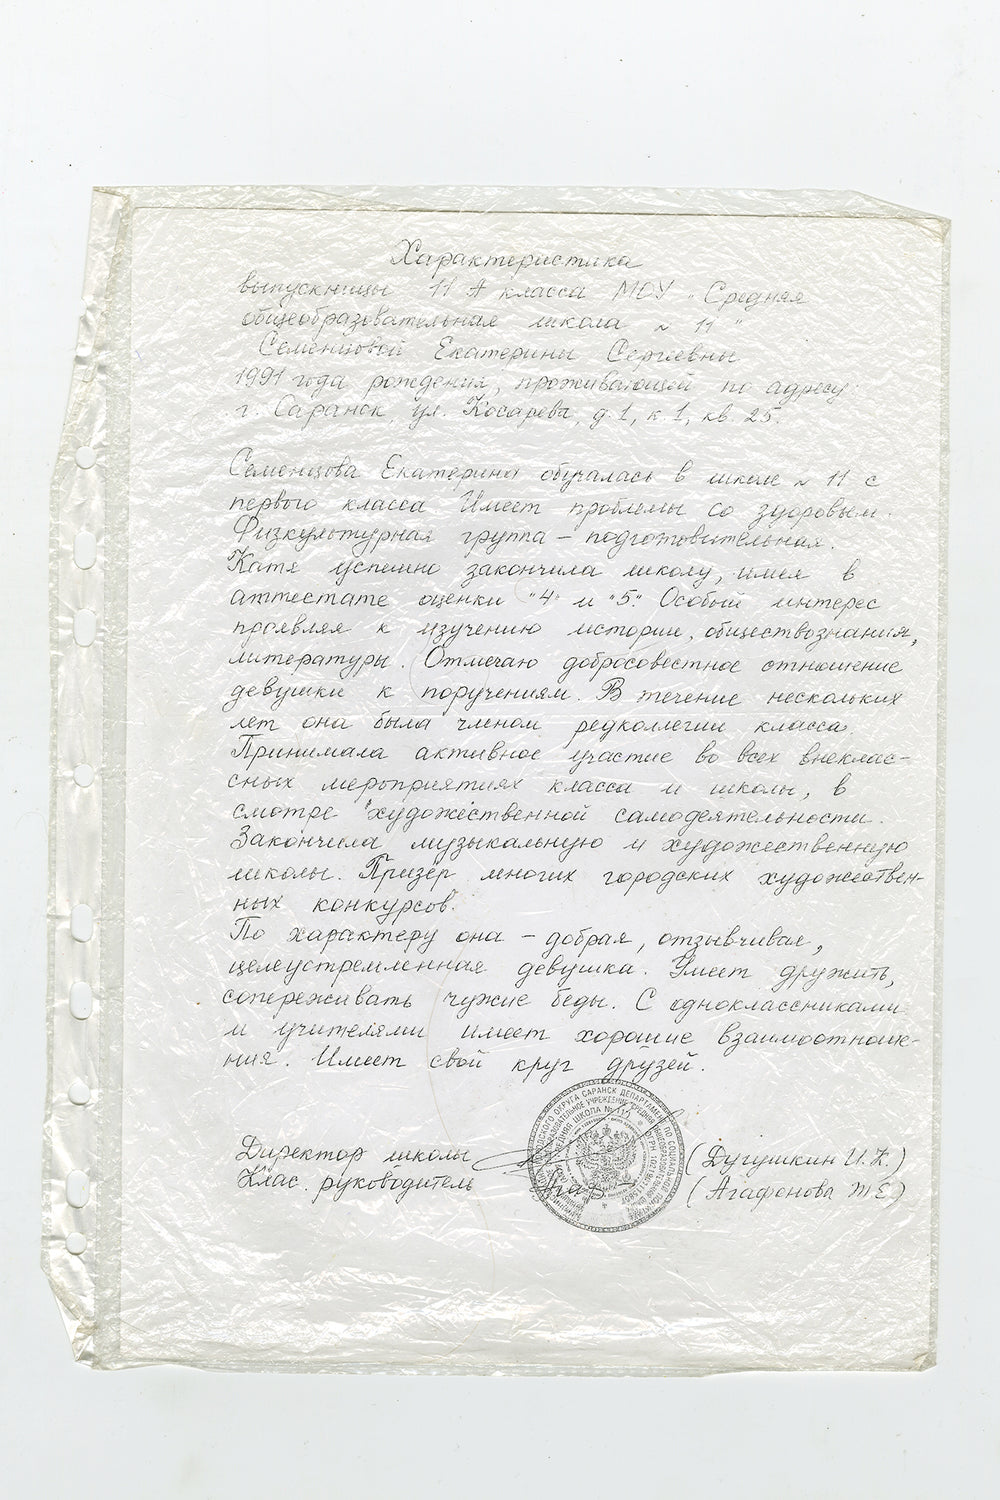 Характеристика
выпускницы 11 А класса МОУ "Средняя
общеобразовательная школа № 11"
Семенцовой Екатерины Сергеевны
1991 года рождения, проживающей по адресу:
г. Саранск, ул. Косарева, д. 1, к. 1, кв. 25.
Семенцова Екатерина обучалась в школе № 11 с
первого класса. Имеет проблемы со здоровьем.
Физкультурная группа – подготовительная.
Катя успешно закончила школу, имея в
аттестате оценки "4" и "5". Особый интерес
проявляя к изучению истории, обществознания,
литературы. Отмечаю добросовестное отношение
девушки к поручениям. В течение нескольких
лет она была членом редколлегии класса.
Принимала активное участие во всех внеклас-
сных мероприятиях класса и школы, в
смотре художественной самодеятельности.
Закончила музыкальную и художественную
школы. Призёр многих городских художествен-
ных конкурсов.
По характеру она – добрая, отзывчивая,
целеустремленная девушка. Умеет дружить,
сопереживать чужие беды. С одноклассниками
и учителями имеет хорошие взаимоотноше-
ния. Имеет свой круг друзей.
Директор школы (Дугушкин И.К.)
Клас. руководитель (Агафонова Т.Е.)
ГОРОДСКОГО ОКРУГА САРАНСК ДЕПАРТАМЕНТ ПО СОЦИАЛЬНОЙ
СРЕДНЯЯ ШКОЛА № 11